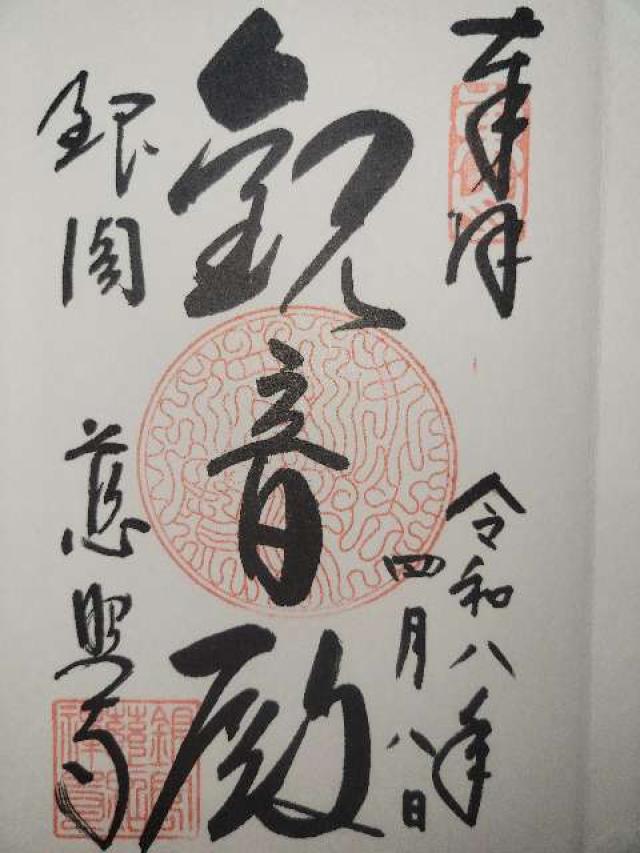 奉拝
令和八年
四月八日
観音殿
銀閣
慈照寺